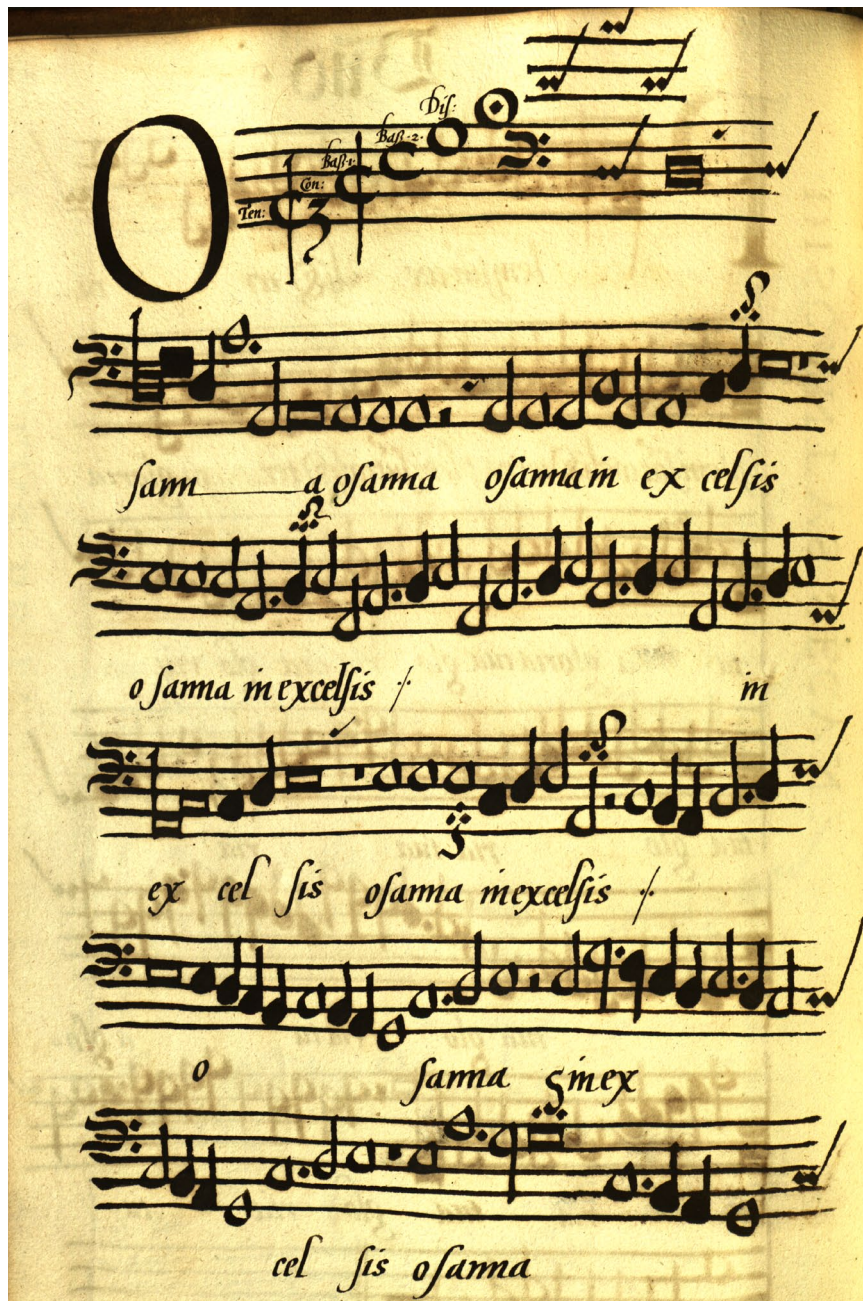 O
Ten: Con: Baſ·1· Baſ·2· Diſ:
ſann a oſanna oſanna in ex celſis
o ſanna in excelſis ·/· in
ex cel ſis oſanna in excelſis ·/·
o ſanna in ex
cel ſis oſanna